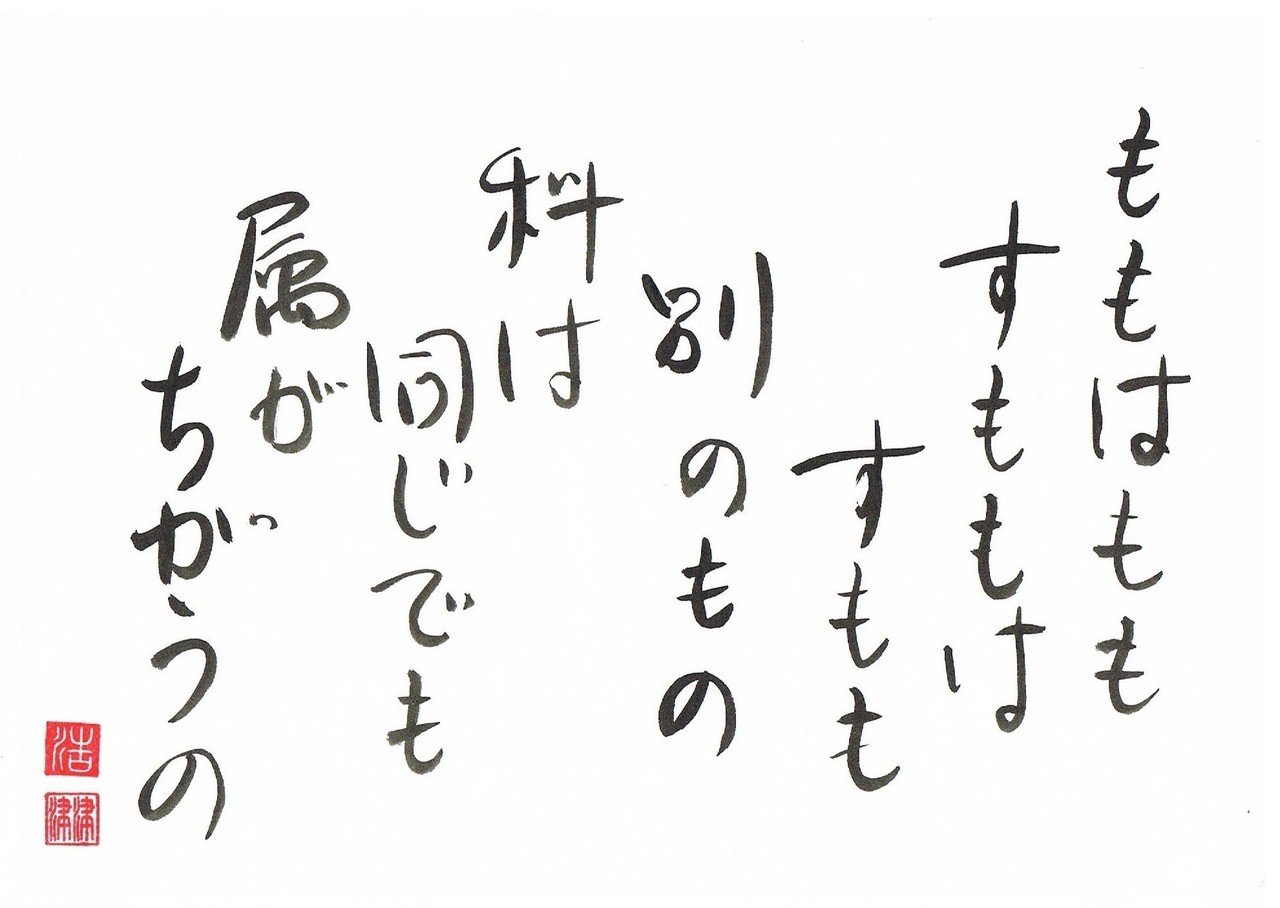 ももはもも
すももは
すもも
別のもの
科は
同じでも
属が
ちがうの